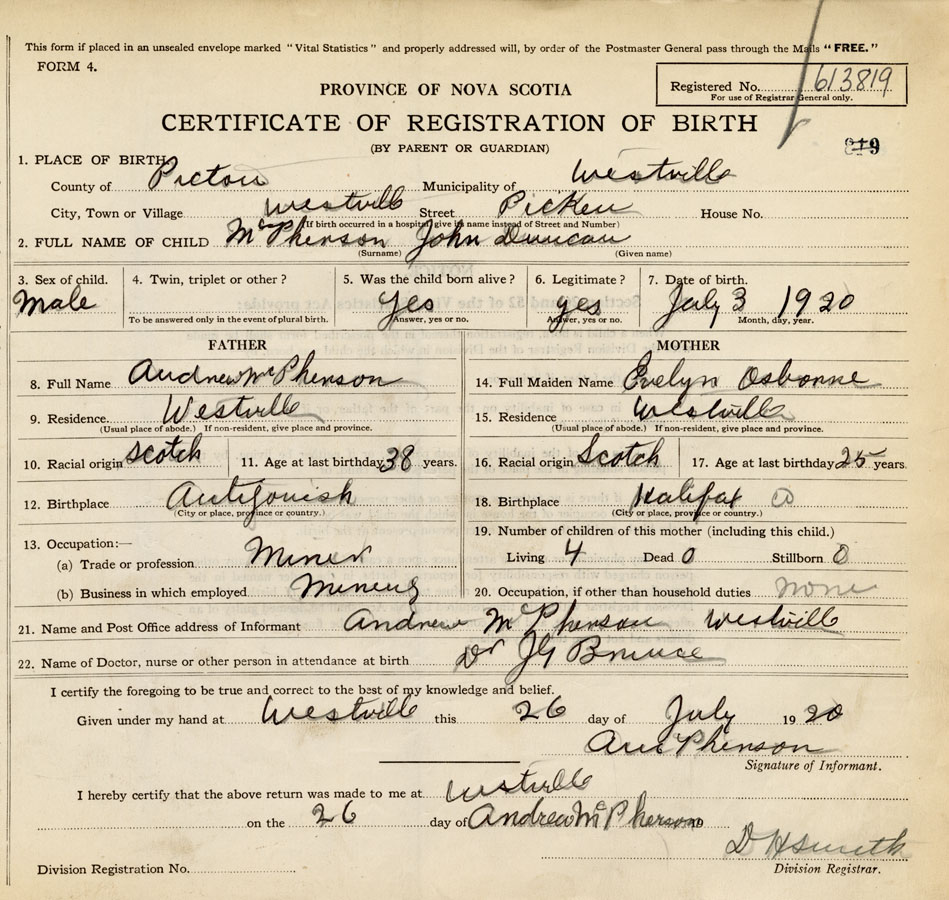 This form if placed in an unsealed envelope marked "Vital Statistics" and properly addressed will, by order of the Postmaster General pass through the Mails "FREE."
FORM 4.
Registered No. 613819
For use of Registrar General only.
PROVINCE OF NOVA SCOTIA
CERTIFICATE OF REGISTRATION OF BIRTH
(BY PARENT OR GUARDIAN)
1. PLACE OF BIRTH
County of Pictou Municipality of Westville
City, Town or Village Westville Street House No.
(If birth occurred in a hospital give its name instead of Street and Number)
2. FULL NAME OF CHILD McPherson John Duncan
(Surname) (Given name)
3. Sex of child. 4. Twin, triplet or other? 5. Was the child born alive? 6. Legitimate? 7. Date of birth.
Male Yes yes July 3 1920
To be answered only in the event of plural birth. Answer, yes or no. Answer, yes or no. Month, day, year.
FATHER MOTHER
8. Full Name Andrew McPherson 14. Full Maiden Name Evelyn Osborne
9. Residence. Westville 15. Residence Westville
(Usual place of abode.) If non-resident, give place and province. (Usual place of abode.) If non-resident, give place and province.
10. Racial origin Scotch 11. Age at last birthday 38 years. 16. Racial origin Scotch 17. Age at last birthday 25 years.
12. Birthplace Antigonish 18. Birthplace Halifax Co
(City or place, province or country.) (City or place, province or country.)
13. Occupation:— 19. Number of children of this mother (including this child.)
(a) Trade or profession Miner Living 4 Dead 0 Stillborn 0
(b) Business in which employed Mining 20. Occupation, if other than household duties none
21. Name and Post Office address of Informant Andrew McPherson Westville
22. Name of Doctor, nurse or other person in attendance at birth Dr
I certify the foregoing to be true and correct to the best of my knowledge and belief.
Given under my hand at Westville this 26 day of July 1920
Signature of Informant.
I hereby certify that the above return was made to me at Westville
on the 26 day of Andrew McPherson
D H Smith
Division Registration No. Division Registrar.